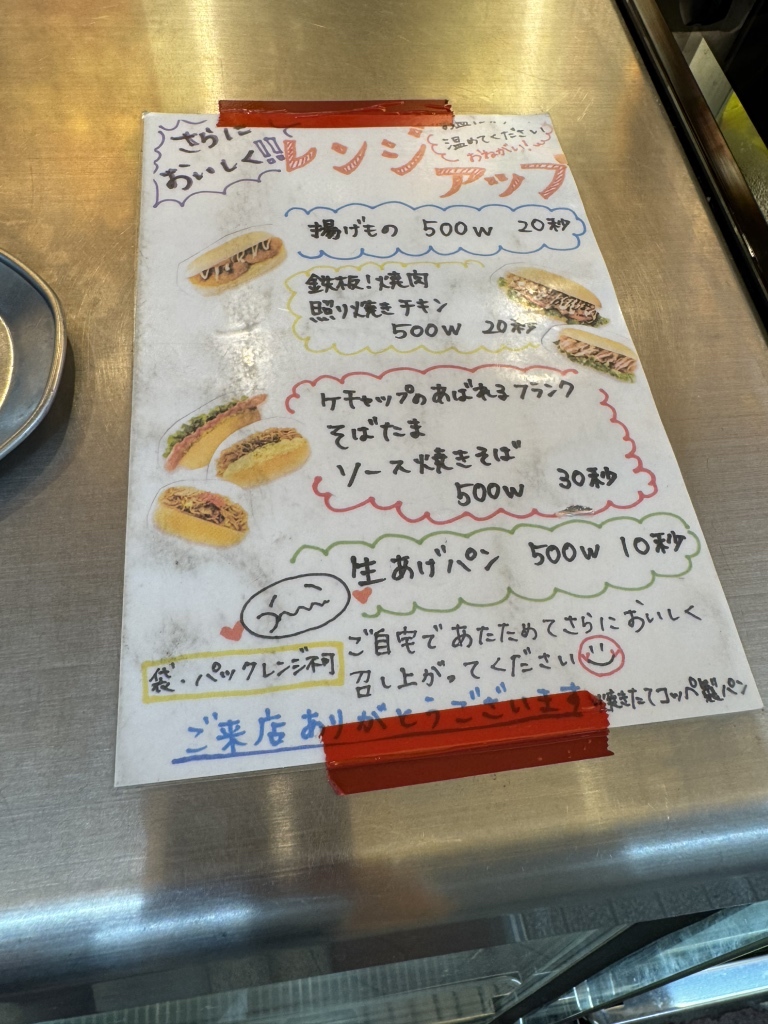 さらに
おいしく!!
レンジ
アップ
温めてください
おねがい!
揚げもの 500W 20秒
鉄板!焼肉
照り焼きチキン
500W 20秒
ケチャップのあばれるフランク
そばたま
ソース焼きそば
500W 30秒
生あげパン 500W 10秒
ご自宅であたためてさらにおいしく
召し上がってください
袋・パックレンジ不可
焼きたてコッペ製パン
ご来店ありがとうございます